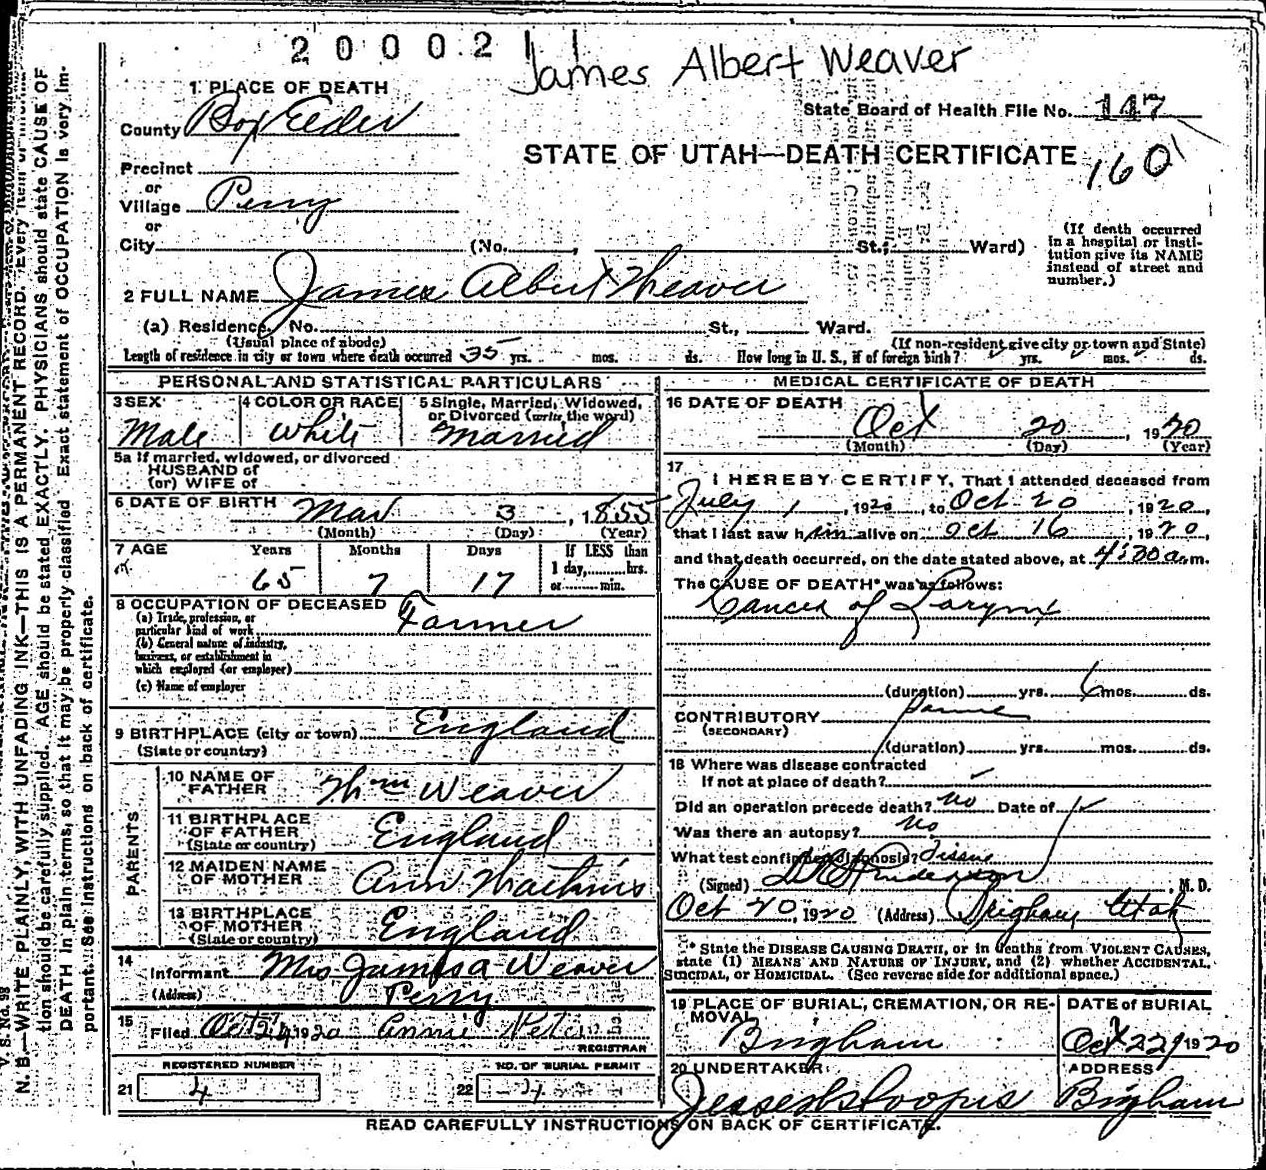 2 0 0 0 2 1 1
James Albert Weaver
1 PLACE OF DEATH
State Board of Health File No. 147
County Box Elder
STATE OF UTAH—DEATH CERTIFICATE
160
Precinct
or
Village Perry
or
City (No. , St.; Ward)
(If death occurred in a hospital or institution give its NAME instead of street and number.)
2 FULL NAME James Albert Weaver
(a) Residence. No. St., Ward.
(Usual place of abode) (If non-resident give city or town and State)
Length of residence in city or town where death occurred 35 yrs. mos. ds. How long in U. S., if of foreign birth? yrs. mos. ds.
PERSONAL AND STATISTICAL PARTICULARS
3 SEX 4 COLOR OR RACE 5 Single, Married, Widowed, or Divorced (write the word)
Male White Married
5a If married, widowed, or divorced
HUSBAND of
(or) WIFE of
6 DATE OF BIRTH Mar 3, 1855
(Month) (Day) (Year)
7 AGE Years Months Days If LESS than
1 day, hrs.
65 7 17 or min.
8 OCCUPATION OF DECEASED
(a) Trade, profession, or
particular kind of work Farmer
(b) General nature of industry,
business, or establishment in
which employed (or employer)
(c) Name of employer
9 BIRTHPLACE (city or town) England
(State or country)
PARENTS
10 NAME OF FATHER Wm Weaver
11 BIRTHPLACE OF FATHER (State or country) England
12 MAIDEN NAME OF MOTHER Ann Watkins
13 BIRTHPLACE OF MOTHER (State or country) England
14 Informant Mrs James A Weaver
(Address) Perry
15 Filed Oct 24 1920 Annie
REGISTRAR
REGISTERED NUMBER NO. OF BURIAL PERMIT
21 4 22 4
MEDICAL CERTIFICATE OF DEATH
16 DATE OF DEATH
Oct 20, 1920
(Month) (Day) (Year)
17
I HEREBY CERTIFY, That I attended deceased from
July 1, 1920, to Oct 20, 1920,
that I last saw him alive on Oct 16 1920,
and that death occurred, on the date stated above, at 4:30 a.m.
The CAUSE OF DEATH* was as follows:
Cancer of Larynx
(duration) yrs. 6 mos. ds.
CONTRIBUTORY
(SECONDARY)
(duration) yrs. mos. ds.
18 Where was disease contracted
If not at place of death?
Did an operation precede death? no Date of
Was there an autopsy? No
What test confirmed diagnosis? Tissue
(Signed) , M. D.
Oct 20, 1920 (Address) Brigham, Utah
* State the DISEASE CAUSING DEATH, or in deaths from VIOLENT CAUSES,
state (1) MEANS AND NATURE OF INJURY, and (2) whether ACCIDENTAL,
SUICIDAL, or HOMICIDAL. (See reverse side for additional space.)
19 PLACE OF BURIAL, CREMATION, OR REMOVAL DATE of BURIAL
Brigham Oct 22 1920
20 UNDERTAKER ADDRESS
Brigham
READ CAREFULLY INSTRUCTIONS ON BACK OF CERTIFICATE.
V. S. No. 98
N. B.—WRITE PLAINLY, WITH UNFADING INK—THIS IS A PERMANENT RECORD. Every item of
tion should be carefully supplied. AGE should be stated EXACTLY. PHYSICIANS should state CAUSE OF
DEATH in plain terms, so that it may be properly classified. Exact statement of OCCUPATION is very im-
portant. See instructions on back of certificate.